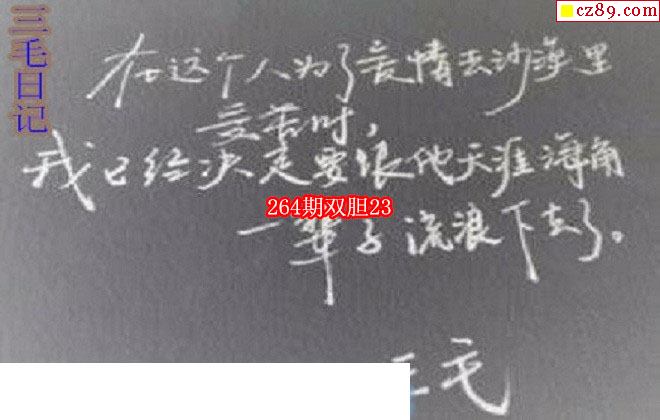 三毛日记
cz89.com
在这个人为了爱情去沙漠里
受苦时,
我已经决定要跟他天涯海角
264期双胆23
一辈子流浪下去了。
三毛